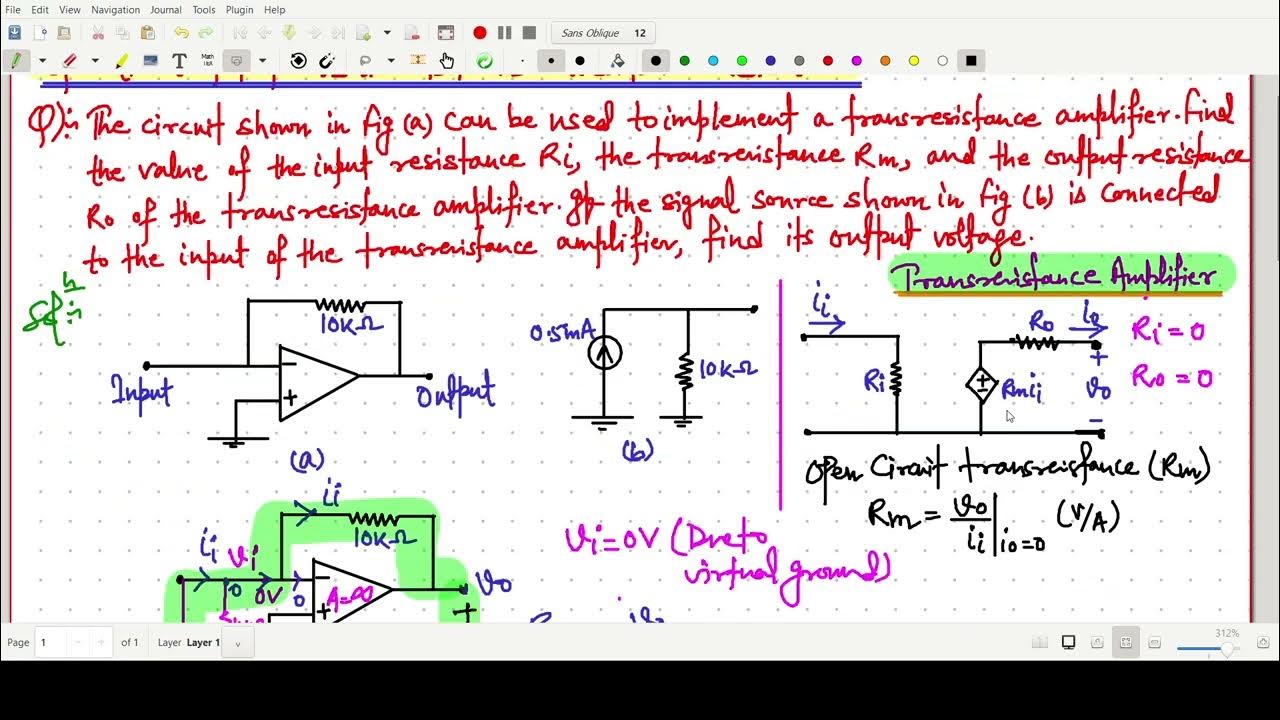 File Edit View Navigation Journal Tools Plugin Help
Sans Oblique 12
Q): The circuit shown in fig (a) can be used to implement a transresistance amplifier. Find
the value of the input resistance Ri, the transresistance Rm, and the output resistance
Ro of the transresistance amplifier. If the signal source shown in fig (b) is connected
to the input of the transresistance amplifier, find its output voltage.
Solⁿ:
Transresistance Amplifier
10KΩ
Input
−
+
Output
(a)
0.5mA
10KΩ
(b)
ii
Ri
Rmii
Ro
io
+
vo
−
Ri = 0
Ro = 0
Open Circuit transresistance (Rm)
Rm = vo/ii | io=0 (V/A)
ii
10KΩ
ii vi
0 0V 0
−
+
A=∞
vo
+
vi = 0V (Due to
virtual ground)
Page 1 of 1 Layer Layer 1
312%